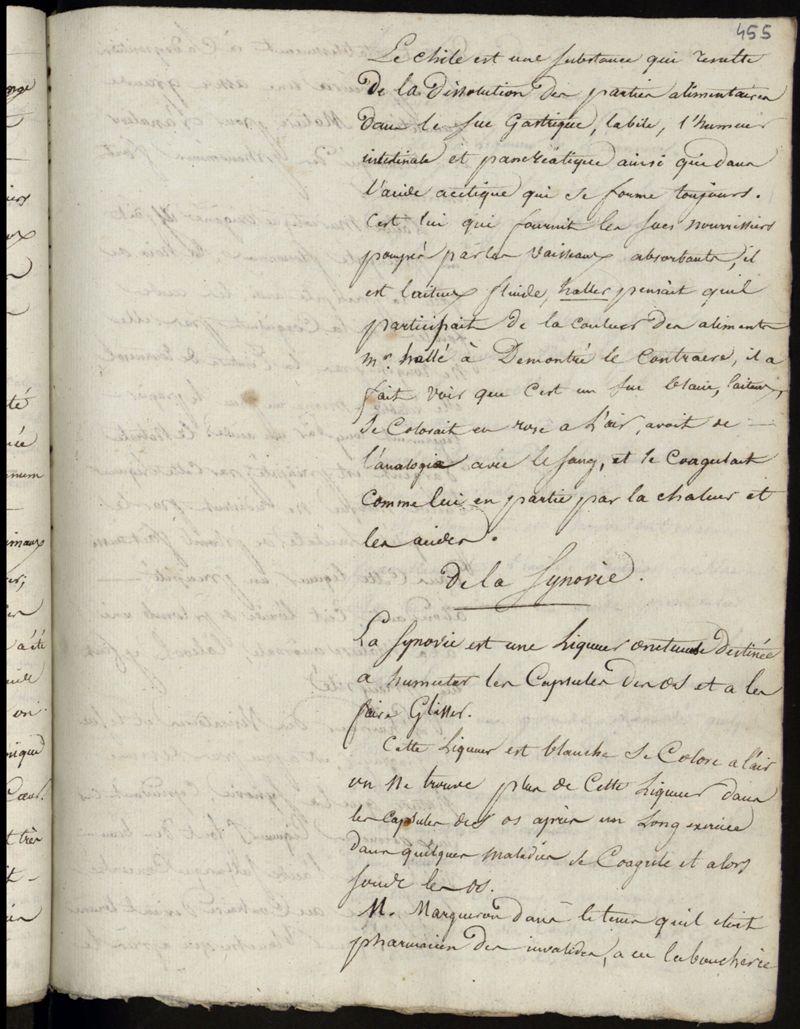 455
Le chile est une substance qui resulte
De la Dissolution des parties alimentaires
dans le suc Gastrique, labile, l'humeur
intestinale et pancréatique ainsi que dans
l'acide acétique qui se forme toujours.
C'est lui qui fournit les sucs nourrissiers
pompés par les Vaisseaux absorbants, il
est laiteux fluide, haller pensait qu'il
participait de la couleur des aliments
mr hallé à Demontré le contraire, il a
fait voir que c'est un suc blanc, laiteux,
se Colorait en rose a l'air, avoit de
l'analogie avec le sang, et se Coagulait
Comme lui en partie par la chaleur et
les acides.
De la Synovie.
La Synovie est une Liqueur onctueuse Destinée
a humecter les Capsules des os et a les
faire Glisser.
Cette Liqueur est blanche se Colore a l'air
on ne trouve plus de Cette Liqueur dans
les Capsules des os après un Long exercice
dans quelques maladies se Coagule et alors
soude les os.
M. Margueron dans le tems qu'il etoit
pharmacien des invalides, a eu la boucherie
té
num
imaux
a été
on
Coeur.
t très